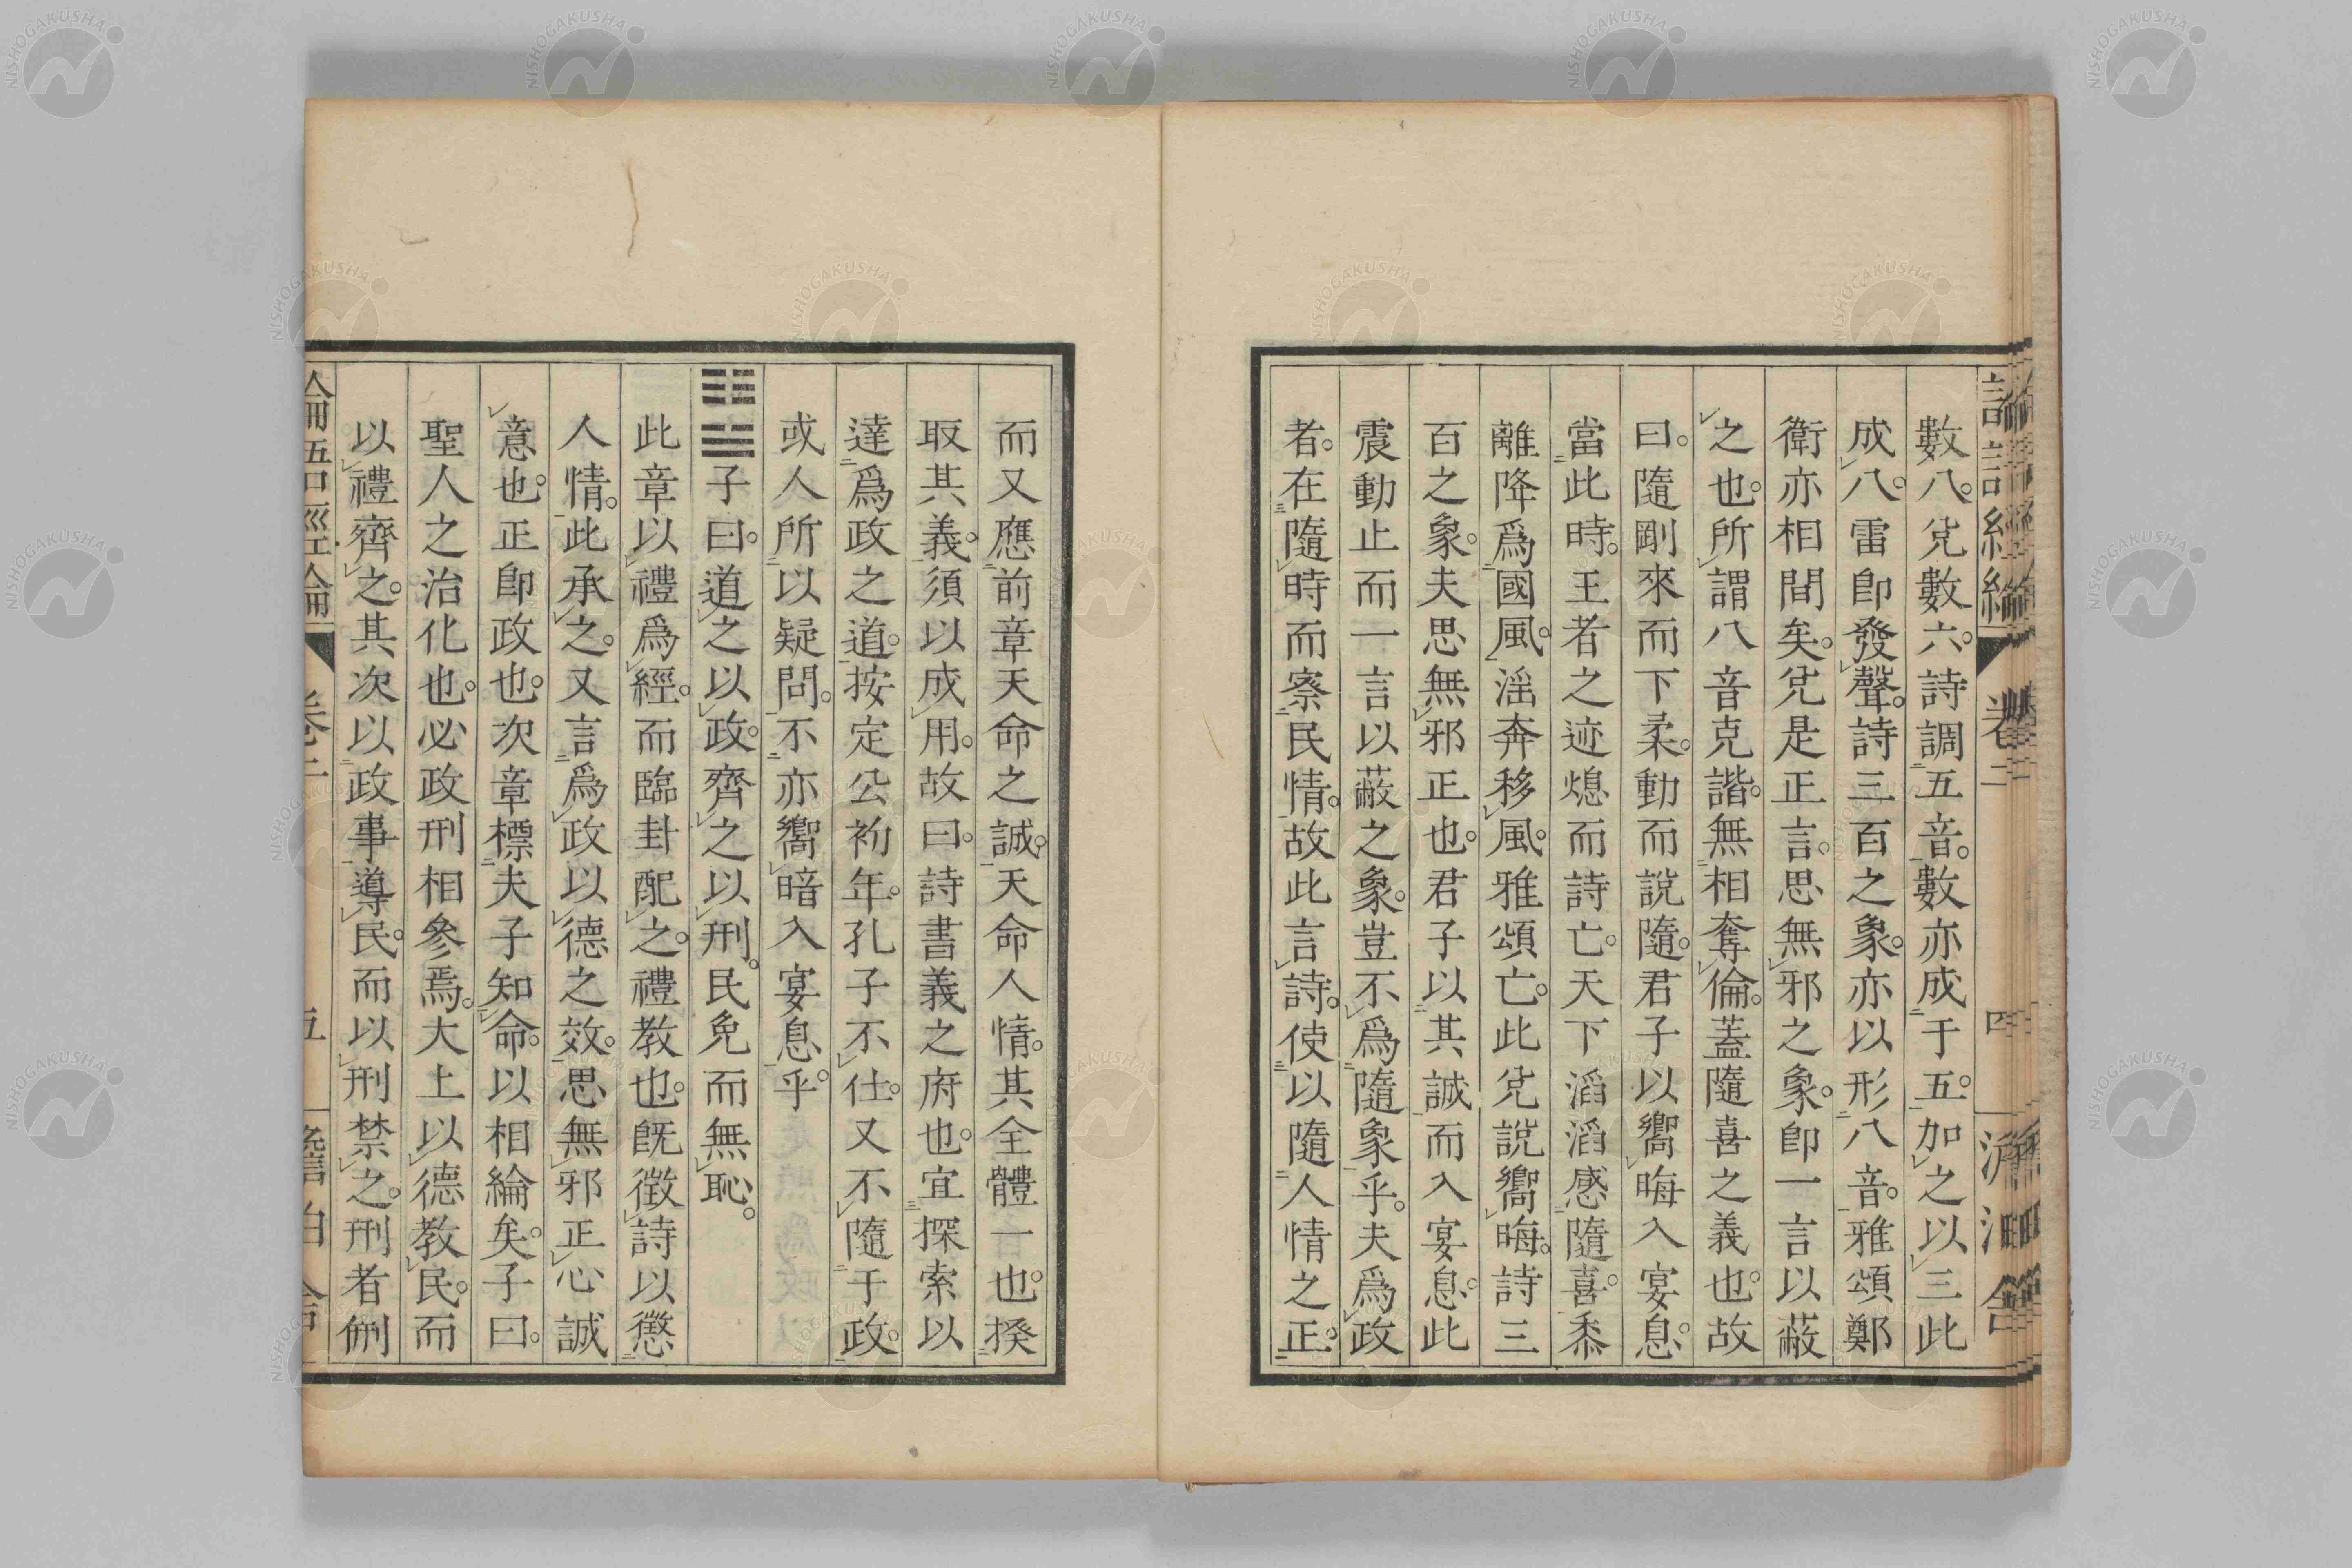 數八。兌數六。詩調五音。數亦成于五。加之以三此
成八。雷卽發聲。詩三百之象。亦以形八音。雅頌鄭
衛亦相間矣。兌是正言。思無邪之象。卽一言以蔽
之也。所謂八音克諧。無相奪倫。蓋隨喜之義也。故
曰。隨剛來而下柔。動而說隨。君子以嚮晦入宴息。
當此時。王者之迹熄而詩亡。天下滔滔感隨喜。黍
離降爲國風。淫奔移風。雅頌亡。此兌說嚮晦。詩三
百之象。夫思無邪正也。君子以其誠而入宴息。此
震動止而一言以蔽之象。豈不爲隨象乎。夫爲政
者。在隨時而察民情。故此言詩。使以隨人情之正。
而又應前章天命之誠。天命人情。其全體一也。揆
取其義。須以成用。故曰。詩書義之府也。宜探索以
達爲政之道。按定公初年。孔子不仕。又不隨于政。
或人所以疑問。不亦嚮暗入宴息乎。
子曰。道之以政。齊之以刑。民免而無恥。
此章以禮爲經。而臨卦配之。禮教也。旣徵詩以懲
人情。此承之。又言爲政以德之效。思無邪正心誠
意也。正卽政也。次章標夫子知命。以相綸矣。子曰。
聖人之治化也。必政刑相參焉。大上以德教民。而
以禮齊之。其次以政事導民。而以刑禁之。刑者侀
論語經綸 卷二 五